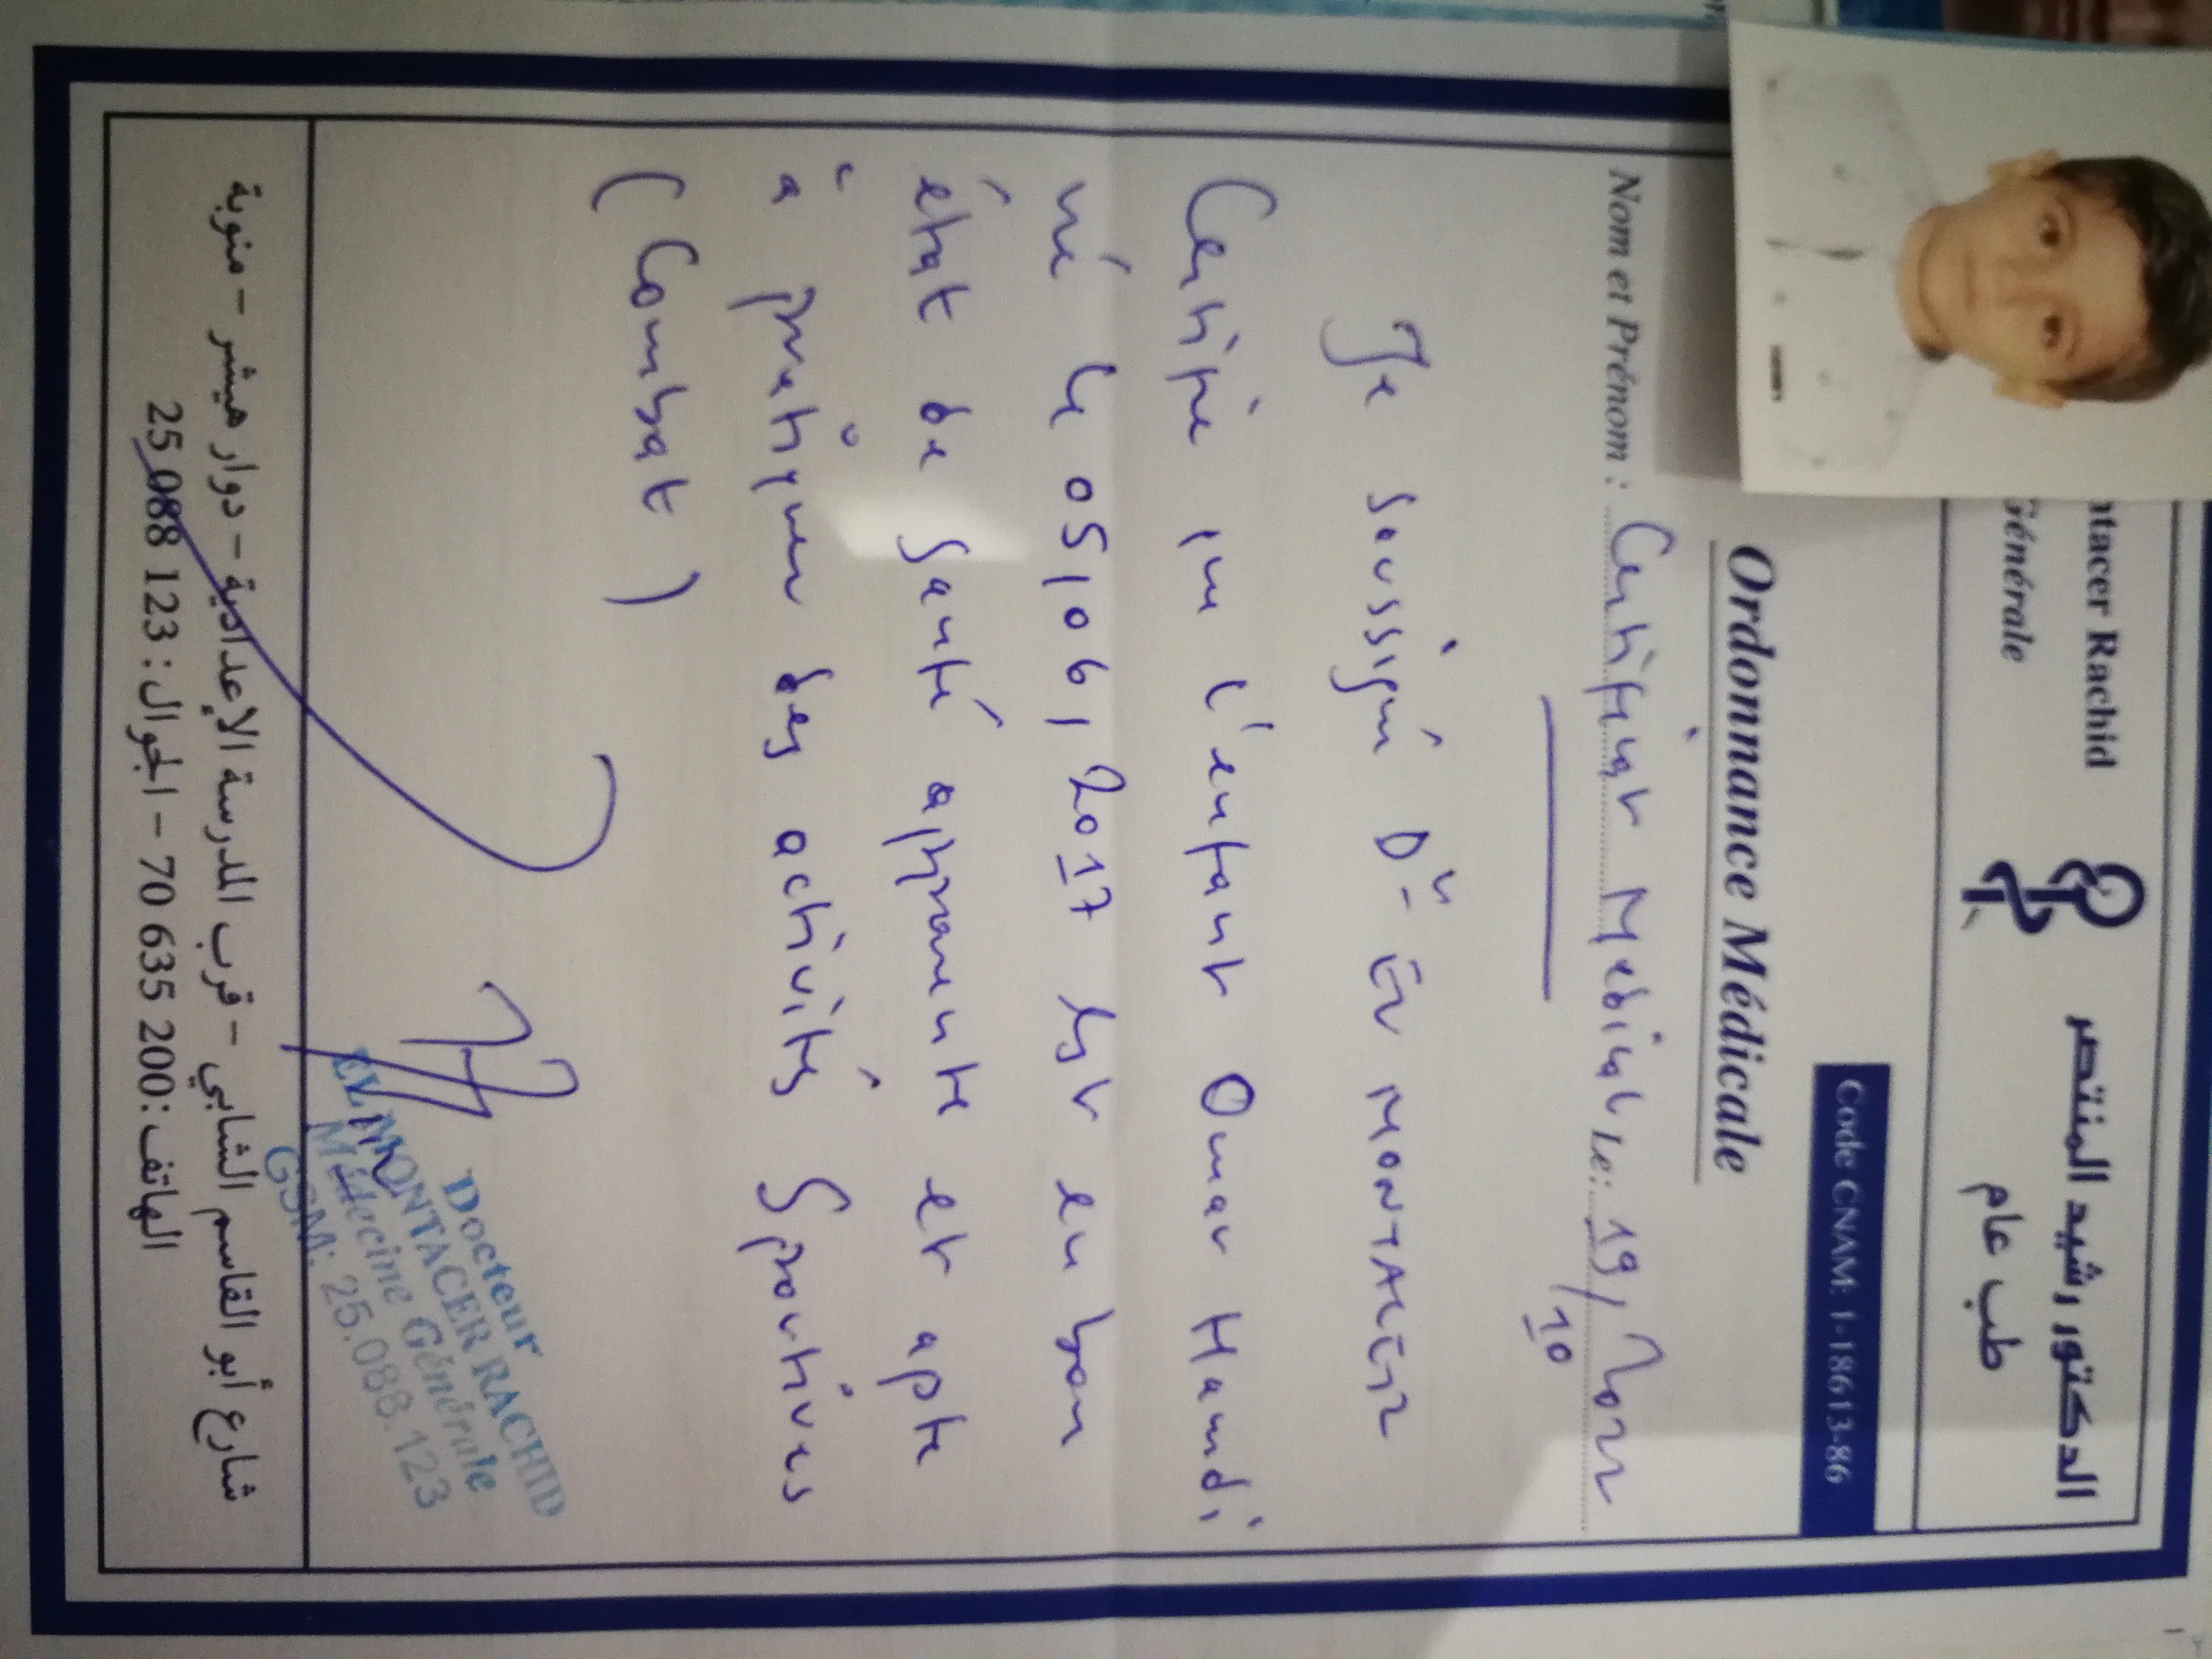 ntacer Rachid
Générale
الدكتور رشيد المنتصر
طب عام
Code CNAM: 1-18613-86
Ordonnance Médicale
Nom et Prénom : Certificat Medical Le: 19/10/2022
Je soussigné Dr EL MONTACER
Certifie que l'enfant Omar Hamdi
né le 05/06/2017 est en bon
état de santé apparente et apte
à pratiquer des activités Sportives
(Combat)
Docteur
EL MONTACER RACHID
Médecine Générale
GSM: 25.088.123
شارع أبو القاسم الشابي - قرب المدرسة الإعدادية - دوار هيشر - منوبة
الهاتف: 70 635 200 - الجوال: 25 088 123